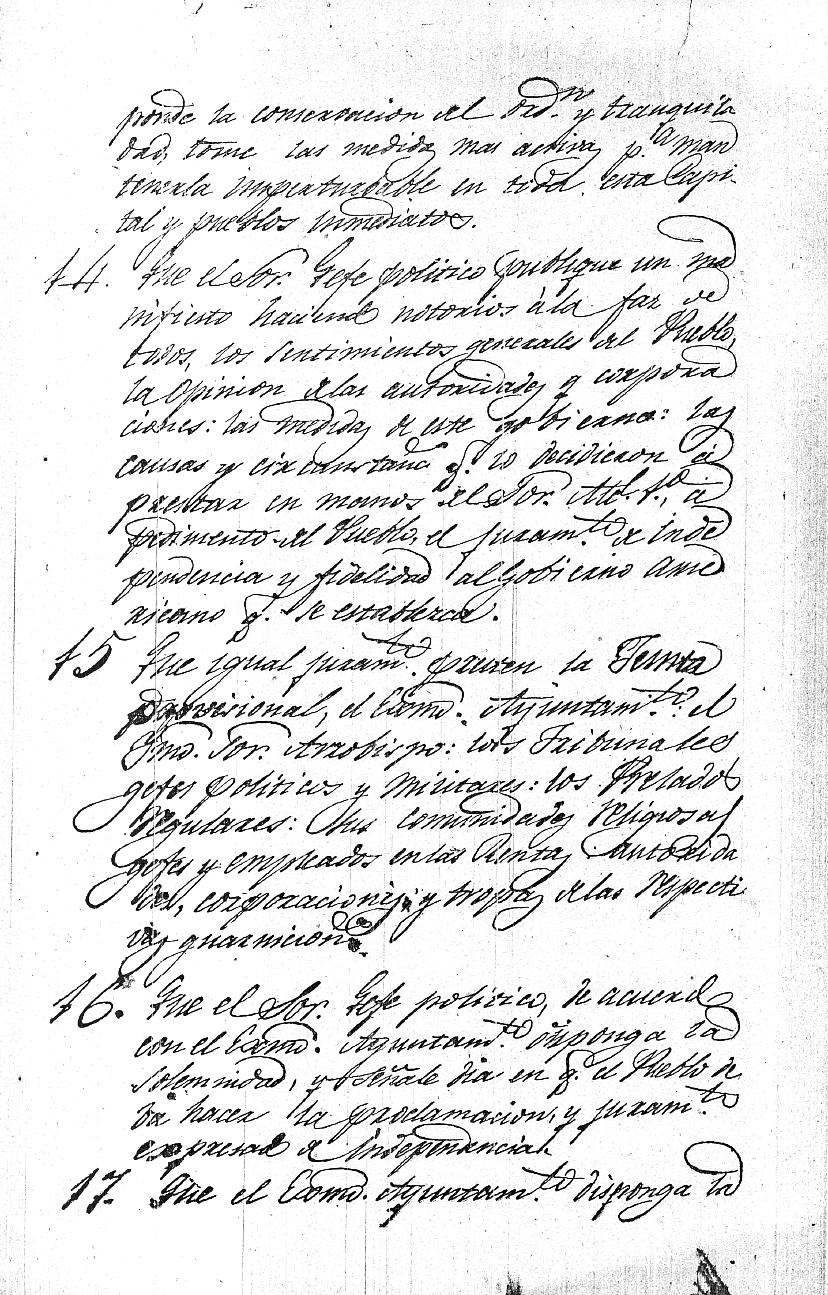 ponde la conservacion del ordn. y tranquili
dad, tome las medidas mas activas p.ra man
tenerla imperturbable en toda esta Capi-
tal y pueblos inmediatos.
14. Que el Sor. Gefe politico publique un ma
nifiesto haciendo notorios á la faz de
todos, los sentimientos generales del Pueblo,
la opinion de las autoridades y corpora
ciones: las medidas de este gobierno: las
causas y circunstancs q. lo decidieron á
prestar en manos del Sor. Alc. 1.o, á
pedimento del Pueblo, el juram.to de inde
pendencia y fidelidad al Gobierno Ame
ricano q. se establezca.
15 Que igual juram.to presten la Junta
provisional, el Exmo. Ayuntam.to: el
Ylmo. Sor. Arzobispo: los Tribunales
gefes politicos y militares: los Prelados
regulares: sus comunidades religiosas
gefes y empleados en las Rentas autorida
des, corporaciones; y tropas de las respecti
vas guarniciones.
16. Que el Sor. Gefe politico, de acuerdo
con el Exmo. Ayuntam.to disponga la
solemnidad, y señale dia en q. el Pueblo de
ba hacer la proclamacion, y juram.to
expresado de independencia.
17. Que el Exmo. Ayuntam.to disponga la